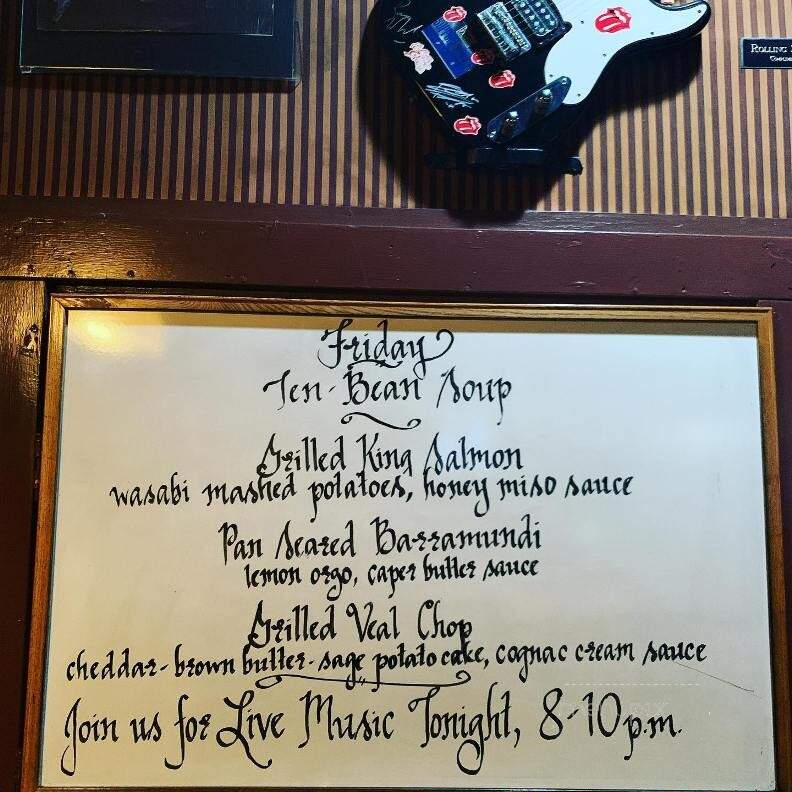 Rolling
Friday
Ten-Bean Soup
Grilled King Salmon
wasabi mashed potatoes, honey miso sauce
Pan Seared Barramundi
lemon orzo, caper butter sauce
Grilled Veal Chop
cheddar-brown butter-sage potato cake, cognac cream sauce
Join us for Live Music Tonight, 8-10 p.m.